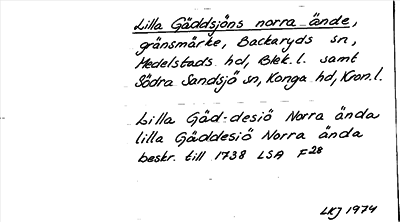 Lilla Gäddsjöns norra ände,
gränsmärke, Backaryds sn,
Medelstads hd, Blek. l. samt
Södra Sandsjö sn, Konga hd, Kron. l.
Lilla Gäd-desiö Norra ända
lilla Gäddesiö Norra ända
beskr. till 1738 LSA F28
LKJ 1974